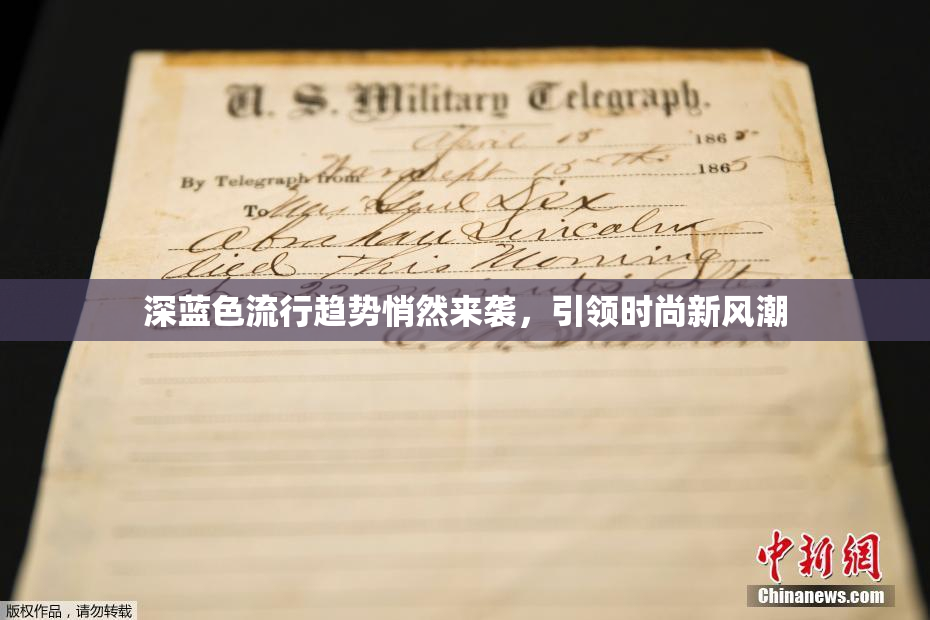 U. S. Military Telegraph.
April 15 1865
By Telegraph from War Dept 15th 1865
To Maj Genl Dix
Abraham Lincoln
died This Morning
22 minutes after
深蓝色流行趋势悄然来袭，引领时尚新风潮
E. M. Stanton
中新網
Chinanews.com
版权作品，请勿转载